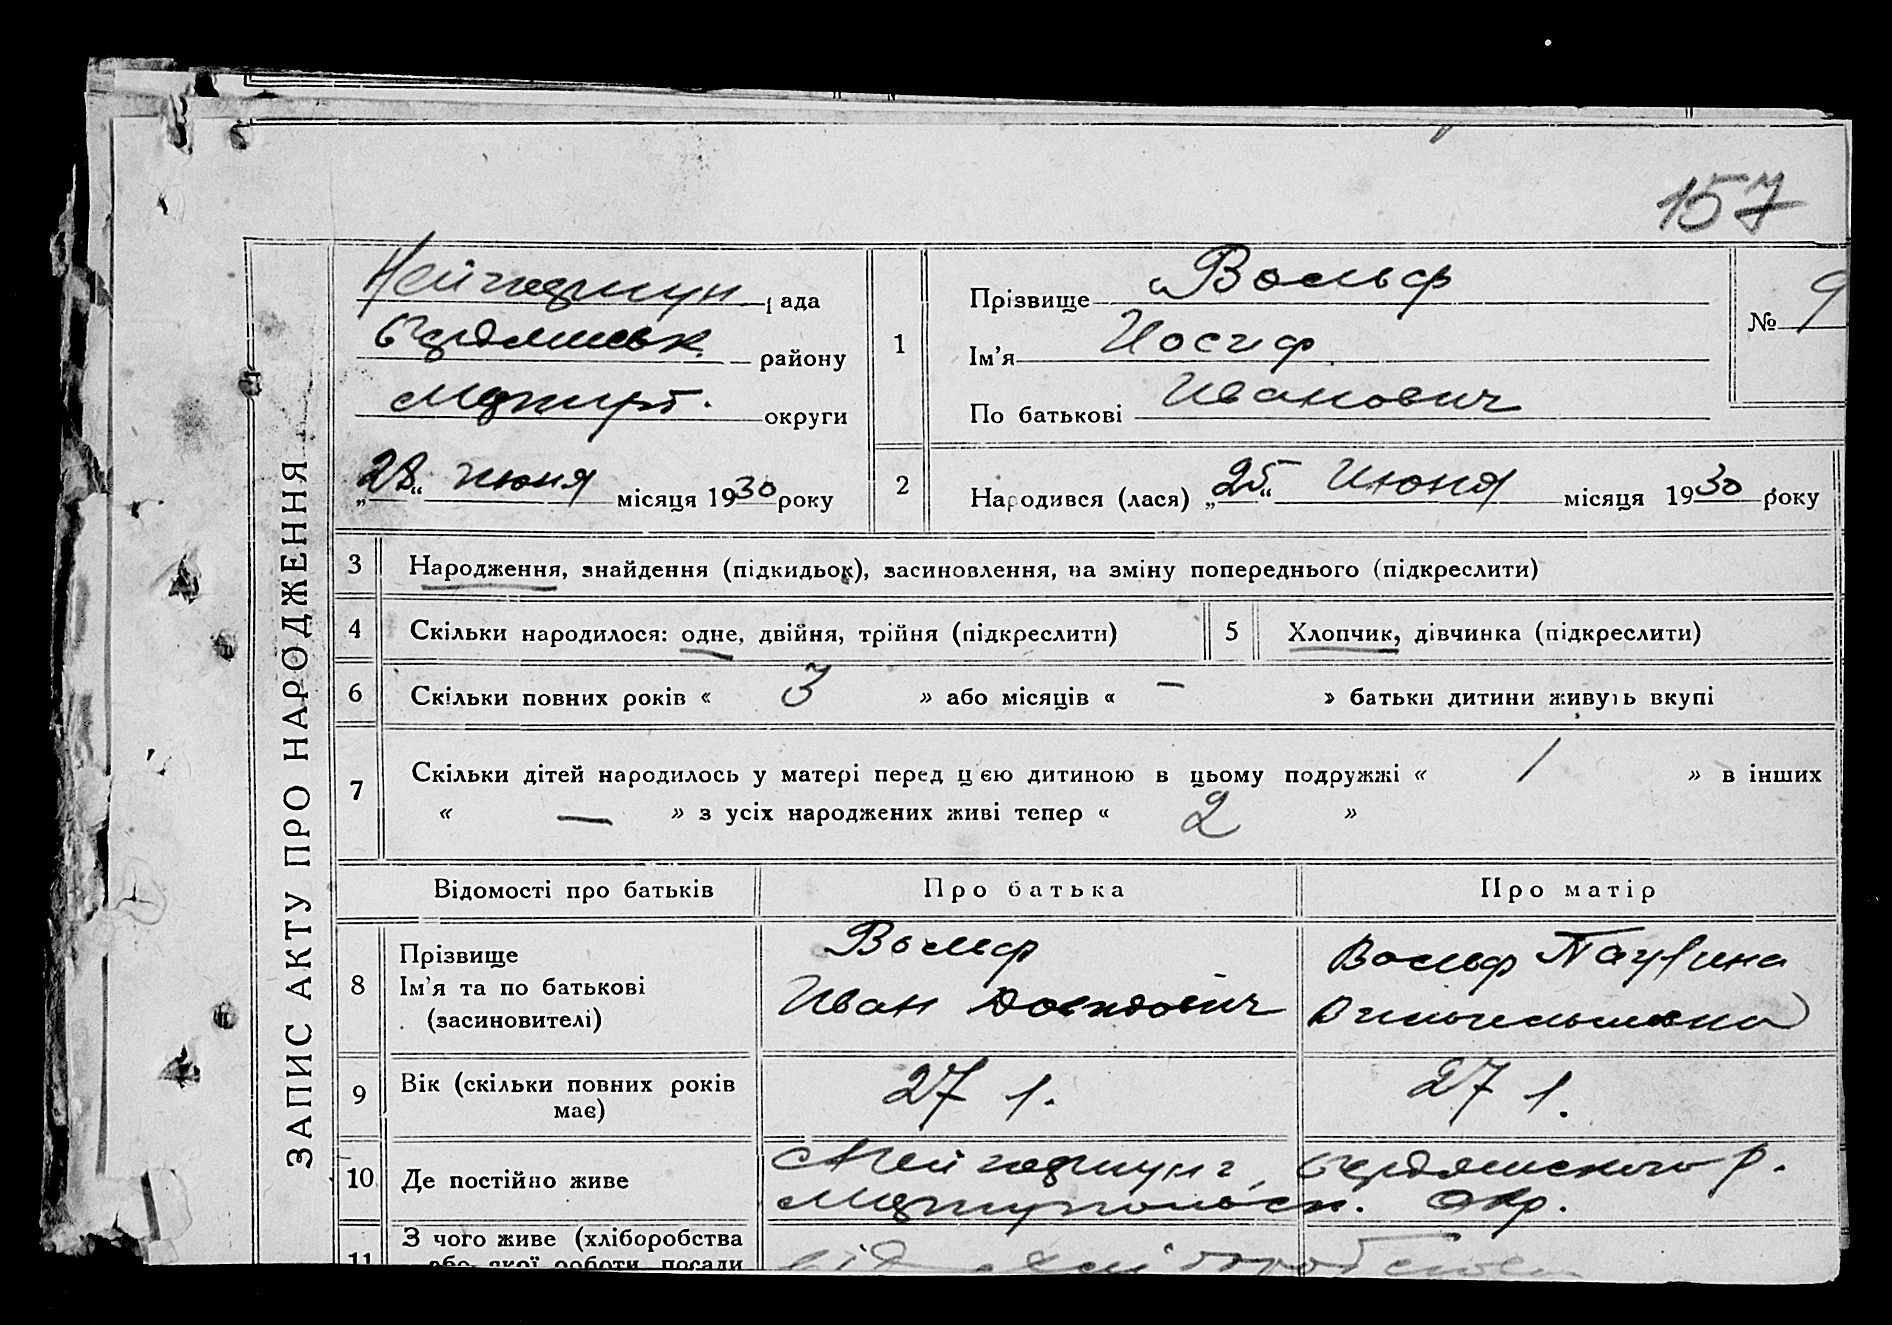 157
Нейгофнунг рада
Бердянськ. району
Маріуп. округи
„28“ июня місяця 1930 року
1
Прізвище Вольф
Ім'я Иосиф
По батькові Иванович
№ 9
2
Народився (лася) „25“ Июня місяця 1930 року
ЗАПИС АКТУ ПРО НАРОДЖЕННЯ
3 Народження, знайдення (підкидьок), засиновлення, на зміну попереднього (підкреслити)
4 Скільки народилося: одне, двійня, трійня (підкреслити) 5 Хлопчик, дівчинка (підкреслити)
6 Скільки повних років « 3 » або місяців « – » батьки дитини живуть вкупі
7 Скільки дітей народилось у матері перед цією дитиною в цьому подружжі « 1 » в інших
« — » з усіх народжених живі тепер « 2 »
Відомості про батьків Про батька Про матір
8 Прізвище
Ім'я та по батькові
(засиновителі)
Вольф
Иван Давидович
Вольф Паулина
Вильгельмовна
9 Вік (скільки повних років
має)
27 л. 27 л.
10 Де постійно живе
Нейгофнунг, Бердянського р.
Маріупольськ. окр.
11 З чого живе (хліборобства
або якої роботи, посади
від хліборобства